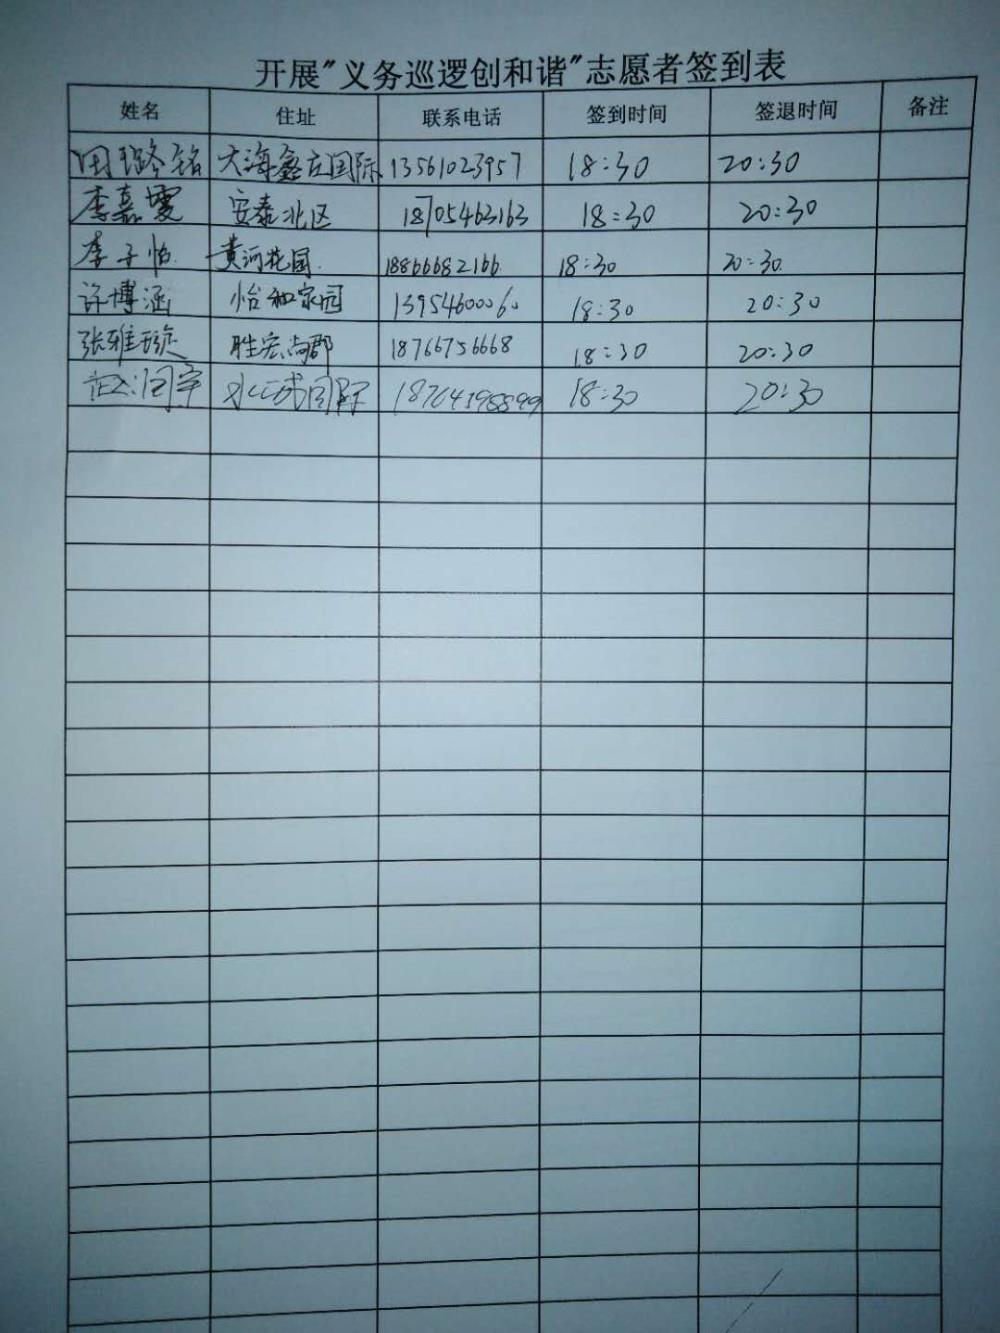 开展"义务巡逻创和谐"志愿者签到表
姓名 住址 联系电话 签到时间 签退时间 备注
田璐铭 大海鑫庄国际 13561023957 18:30 20:30
李嘉雯 安泰北区 18705463163 18:30 20:30
李子怡 黄河花园 18866682166 18:30 20:30
许博涵 怡和家园 13954600060 18:30 20:30
张雅琁 胜宏尚郡 18766756668 18:30 20:30
赵润宇 水城国际 18764198899 18:30 20:30